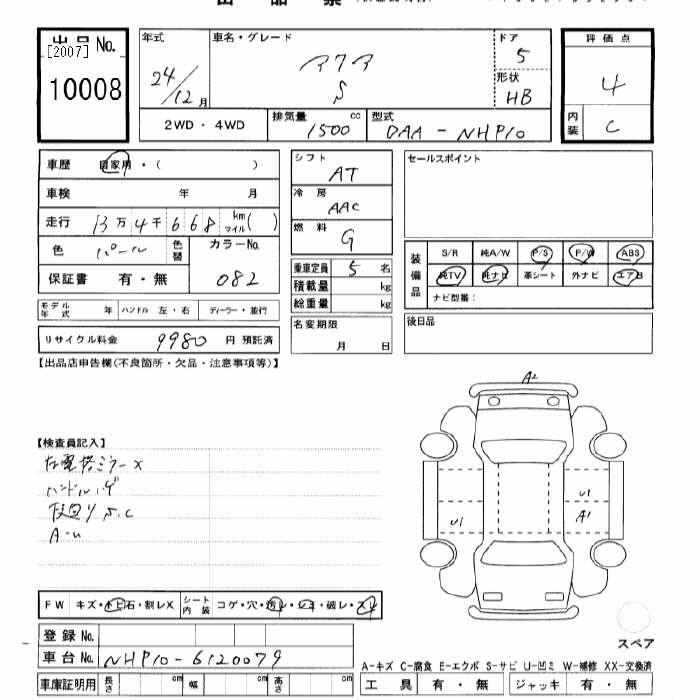 出品票
出品No.
[2007]
10008
年式
24/12月
車名・グレード
アクア
S
ドア
5
形状
HB
評価点
4
内装
C
2WD・4WD
排気量
1500cc
型式
DAA-NHP10
車歴 自家用・( )
車検 年 月
走行 13万4千668 km マイル( )
色 パール 色替 カラーNo. 082
保証書 有・無
モデル年式 年 ハンドル 左・右 ディーラー・並行
リサイクル料金 9980 円 預託済
シフト
AT
冷房
AAC
燃料
G
乗車定員 5 名
積載量 kg
総重量 kg
名変期限
月 日
セールスポイント
装備品
S/R 純A/W P/S P/W ABS
純TV 純ナビ 革シート 外ナビ エアB
ナビ型番:
後日品
【出品店申告欄(不良箇所・欠品・注意事項等)】
【検査員記入】
ハンドルハゲ
A・U
A2
U1
U1
A1
FW キズ・トビ石・割レX シート内装 コゲ・穴・破レ・
登録No.
車台No. NHP10-6120079
車庫証明用 長さ cm 幅 cm 高さ cm
スペア
A-キズ C-腐食 E-エクボ S-サビ U-凹ミ W-補修 XX-交換済
工具 有・無 ジャッキ 有・無